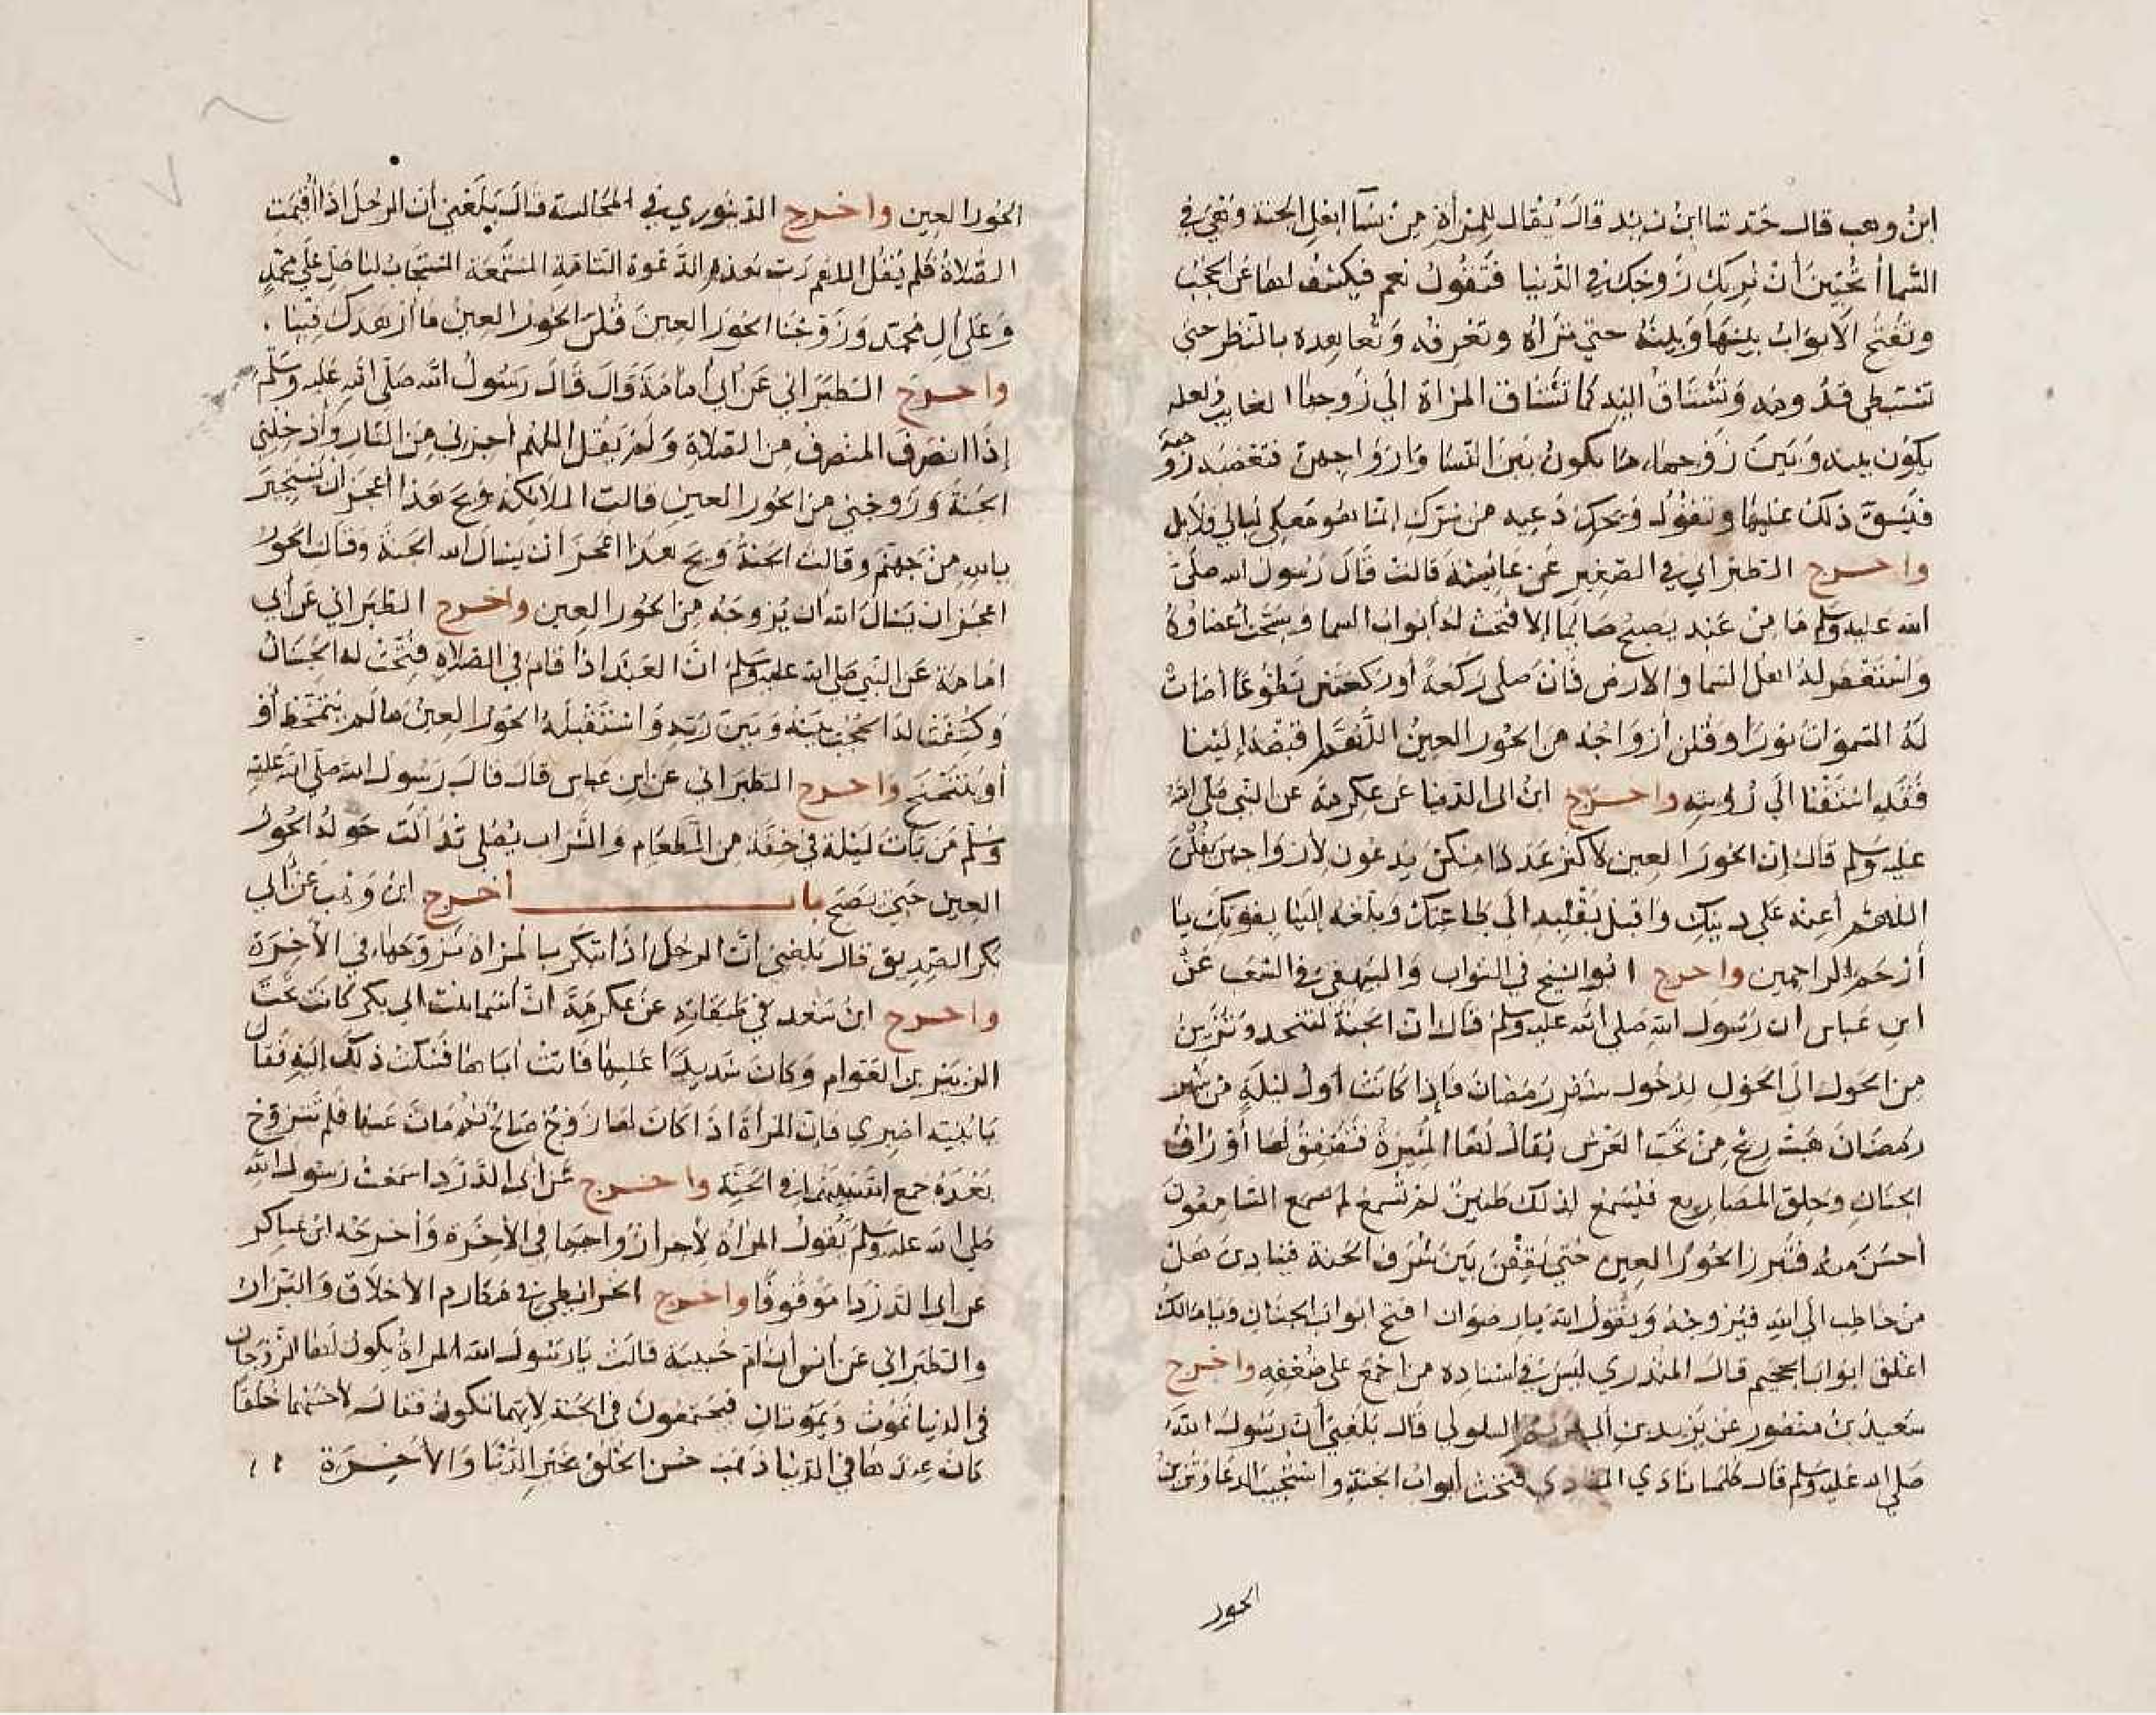 ابن وهب قال حدثنا ابن زيد قال يقال للمرأة من نسآ اهل الجنة وهي في
السما أتحبين أن نريك زوجك في الدنيا فتقول نعم فيكشف لها عن الحجب
وتفتح الابواب بينها وبينه حتي تراه وتعرفه وتعاهده بالنظر حتى
تستبطي قدومه وتشتاق اليه كما تشتاق المرأة الي زوجها الغايب ولعله
يكون بينه وبين زوجها ما يكون بين النسا وازواجهن فتغضبه زوجته
فيشق ذلك عليها وتقول ويحك دعيه من شرك انما هو معك ليالي قلايل
واخرج الطبراني في الصغير عن عائشة قالت قال رسول الله صلى
الله عليه وسلم ما من عبد يصبح صايما إلا فتحت له أبواب السما وسبحت أعضاؤه
واستغفر له اهل السما والارض فان صلى ركعة أو ركعتين تطوعا أضات
له السموات نورا وقلن أزواجه من الحور العين اللهم اقبضه إلينا
فقد اشتقنا الي رويته واخرج ابن ابي الدنيا عن عكرمة عن النبي صلى الله
عليه وسلم قال إن الحور العين لاكثر عددا منكن يدعون لازواجهن يقلن
اللهم أعنه علي دينك واقبل بقلبه الي طاعتك وبلغه إلينا بقوتك يا
أرحم الراحمين واخرج ابو الشيخ في الثواب والبيهقي في الشعب عن
ابن عباس ان رسول الله صلي الله عليه وسلم قال ان الجنة لتنجد وتتزين
من الحول الي الحول لدخول شهر رمضان فإذا كانت أول ليلة من شهر
رمضان هبت ريح من تحت العرش يقال لها المثيرة فتصفق لها أوراق
الجنان وحلق المصاريع فيسمع لذلك طنين لم تسمع السامعون
أحسن منه فتبرز الحور العين حتي يقفن بين شرف الجنة فينادين هل
من خاطب الي الله فيزوجه ويقول الله يا رضوان افتح ابواب الجنان ويا مالك
اغلق ابواب الجحيم قال المنذري ليس في اسناده من اجمع على ضعفه واخرج
سعيد بن منصور عن يزيد بن السلولي قال بلغني أن رسول الله
صلي الله عليه وسلم قال كلما نادي المنادي فتحت أبواب الجنة واستجيب الدعا وتزين
الحور
الحور العين واخرج الدينوري في المجالسة قال بلغني أن الرجل اذا أقيمت
الصلاة فلم يقل اللهم رب هذه الدعوة التامة المستمعة المستجاب لها صل علي محمد
وعلى أل محمد وزوجنا الحور العين قلن الحور العين ما أزهدك فينا.
واخرج الطبراني عن ابي أمامة قال قال رسول الله صلى الله عليه وسلم
إذا انصرف المنصرف من الصلاة ولم يقل اللهم أجرني من النار وأدخلني
الجنة وزوجني من الحور العين قالت الملايكة ويح هذا أعجز ان يستجير
بالله من جهنم وقالت الجنة ويح هذا اعجز ان يسال الله الجنة وقالت الحور
اعجز ان يسال الله ان يزوجه من الحور العين واخرج الطبراني عن أبي
امامة عن النبي صلي الله عليه وسلم ان العبد اذا قام في الصلاة فتحت له الجنان
وكشفت له الحجب بينه وبين ربه واستقبله الحور العين ما لم يتمخط أو
أو يتنخع واخرج الطبراني عن ابن عباس قال قال رسول الله صلي الله عليه
وسلم من بات ليلة في خفة من الطعام والشراب يصلي تدالت حوله الحور
العين حتي يصبح باب أخرج ابن وهب عن أبي
بكر الصديق قال بلغني أن الرجل اذا ابتكر بالمرأة تزوجها في الأخرة
واخرج ابن سعد في طبقاته عن عكرمة ان أسما بنت ابي بكر كانت تحت
الزبير بن العوام وكان شديدا عليها فاتت اباها فشكت ذلك إليه فقال
يا بنية اصبري فان المرأة اذا كان لها زوج صالح ثم مات عنها فلم تتزوج
بعده جمع بينهما في الجنة واخرج عن ابي الدردا سمعت رسول الله
صلي الله عليه وسلم يقول المرأة لأخر أزواجها في الأخرة وأخرجه ابن عساكر
عن أبي الدردا موقوفا واخرج الخرايطي في مكارم الأخلاق والبزار
والطبراني عن أنس أن أم حبيبة قالت يا رسول الله المرأة يكون لها الزوجان
في الدنيا تموت ويموتان فيجتمعون في الجنة لايهما تكون فقال لأحسنهما خلقا
كان عندها في الدنيا ذهب حسن الخلق بخير الدنيا والأخرة